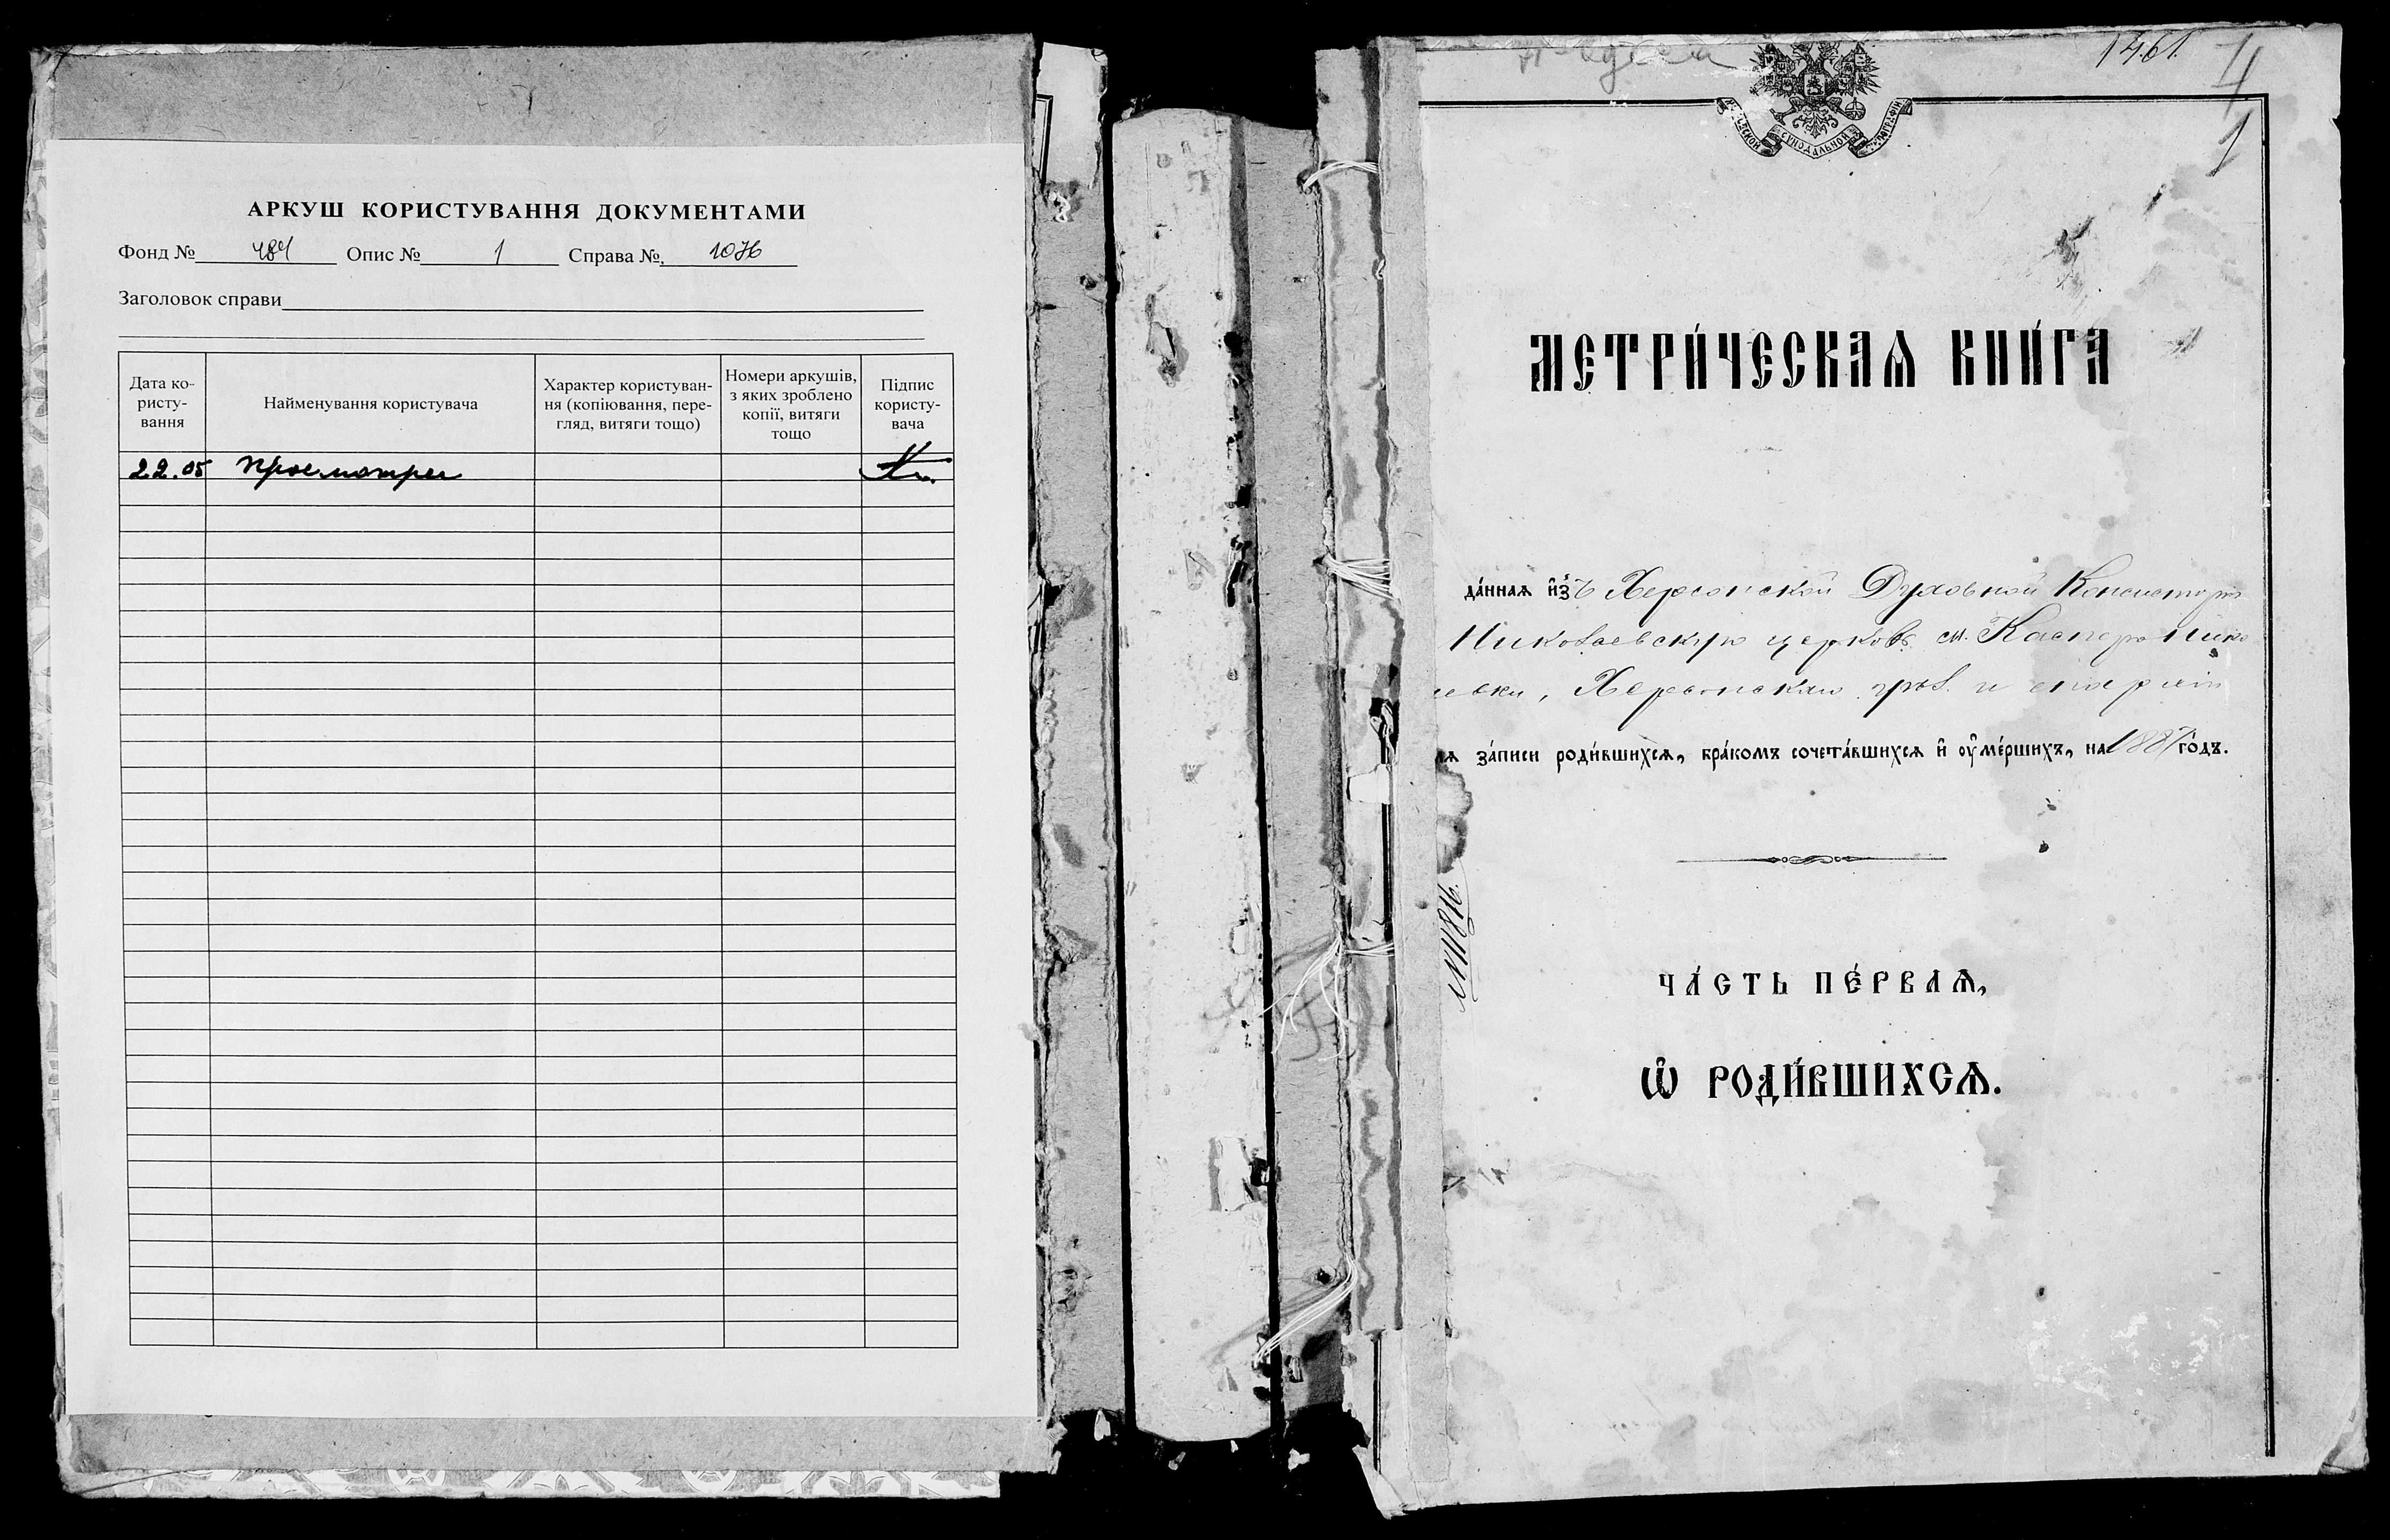 АРКУШ КОРИСТУВАННЯ ДОКУМЕНТАМИ
Фонд № 484 Опис № 1 Справа № 1076
Заголовок справи
Дата ко-
ристу-
вання
Найменування користувача
Характер користуван-
ня (копіювання, пере-
гляд, витяги тощо)
Номери аркушів,
з яких зроблено
копії, витяги
тощо
Підпис
користу-
вача
22.05 просмотрен
1461.
СИНОДАЛЬНОЙ
МЕТРИ́ЧЕСКАѦ КНИ́ГА
да́ннаѧ и҆зъ Херсонской Духовной Консистор
Николаевскую церковь м. Касперо Нико
евки, Херсонской губ. и епархіи
ѧ за́писи роди́вшихсѧ, бра́комъ сочета́вшихсѧ и҆ оу҆ме́ршихъ, на 1887 го́дъ.
ЧА́СТЬ ПЕ́РВАѦ,
Ѡ҆ РОДИ́ВШИХСѦ.